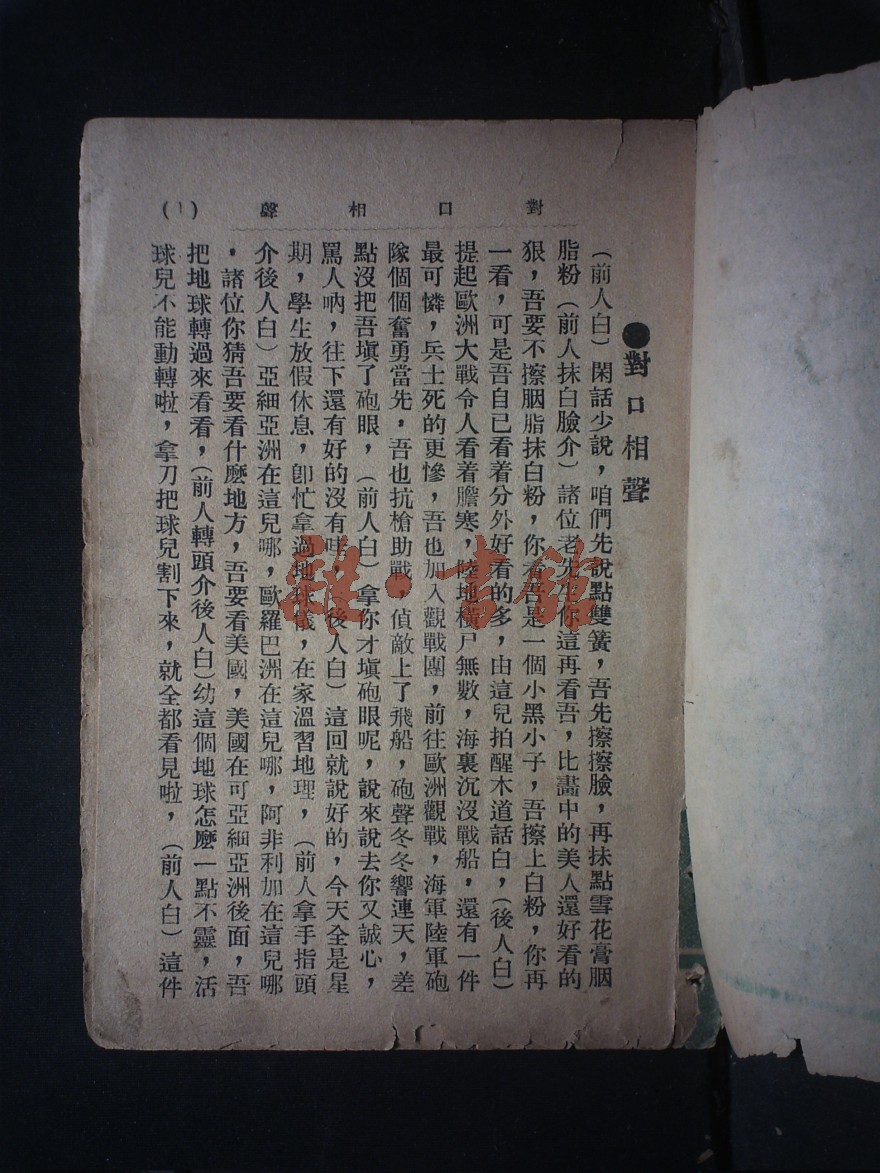 對口相聲 (1)
●對口相聲
(前人白)閑話少說,咱們先說點雙簧,吾先擦擦臉,再抹點雪花膏胭
脂粉(前人抹白臉介)諸位老先生你這再看吾,比畵中的美人還好看的
狠,吾要不擦胭脂抹白粉,你看吾是一個小黑小子,吾擦上白粉,你再
一看,可是吾自已看着分外好看的多,由這兒拍醒木道話白,(後人白)
提起歐洲大戰令人看着膽寒,陸地橫尸無數,海裏沉沒戰船,還有一件
最可憐,兵士死的更慘,吾也加入觀戰團,前往歐洲觀戰,海軍陸軍砲
隊個個奮勇當先,吾也抗槍助戰,偵敵上了飛船,砲聲冬冬響連天,差
點沒把吾塡了砲眼,(前人白)拿你才塡砲眼呢,說來說去你又誠心,
罵人吶,往下還有好的沒有哇,(後人白)這回就說好的,今天全是星
期,學生放假休息,卽忙拿過地球儀,在家溫習地理,(前人拿手指頭
介後人白)亞細亞洲在這兒哪,歐羅巴洲在這兒哪,阿非利加在這兒哪
,諸位你猜吾要看什麼地方,吾要看美國,美國在可亞細亞洲後面,吾
把地球轉過來看看,(前人轉頭介後人白)幼這個地球怎麼一點不靈,活
球兒不能動轉啦,拿刀把球兒割下來,就全都看見啦,(前人白)這件
雜·書館